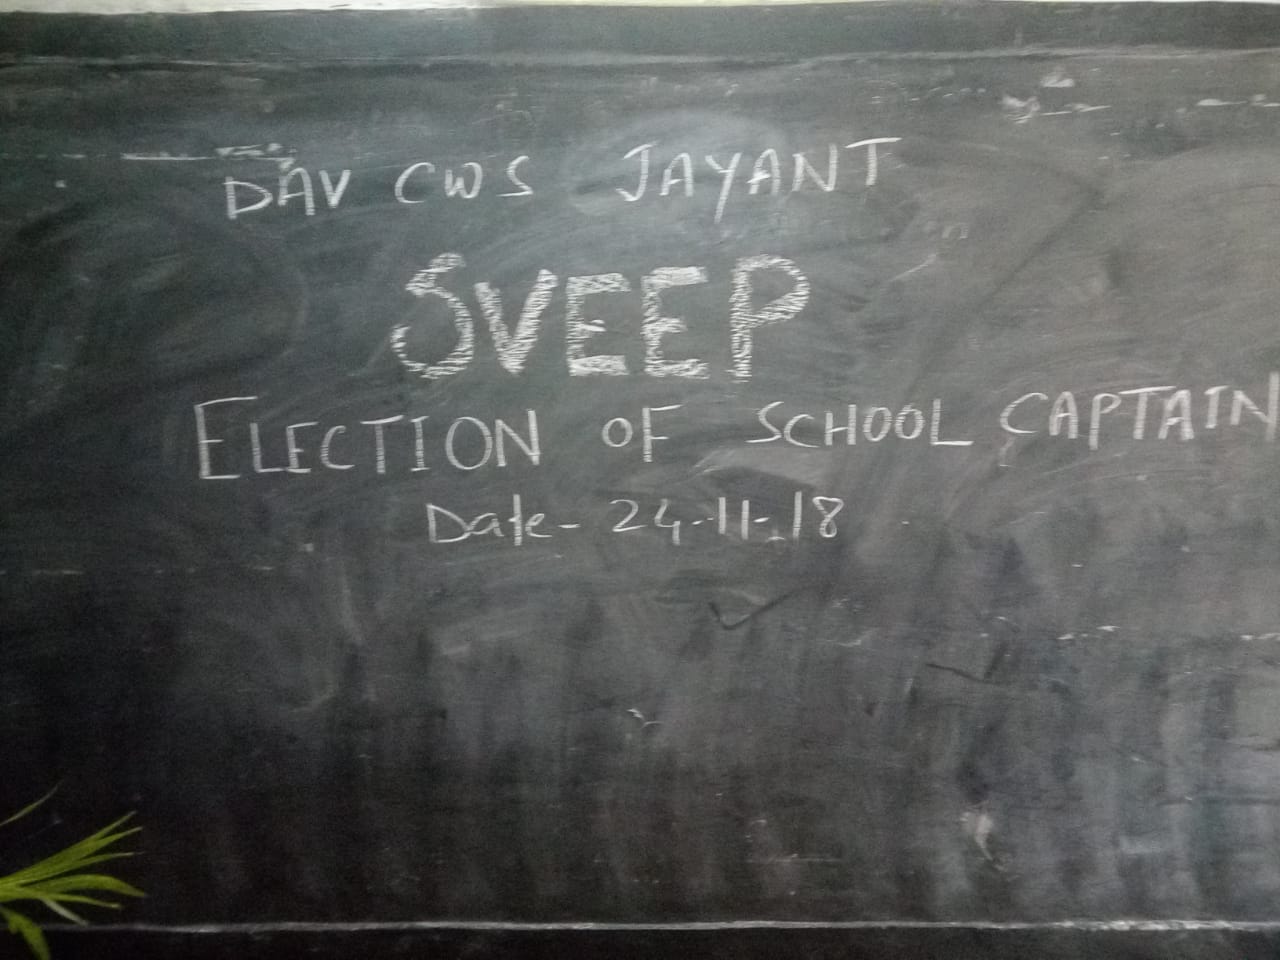 DAV CWS JAYANT
SVEEP
ELECTION OF SCHOOL CAPTAIN
Date- 24-11-18